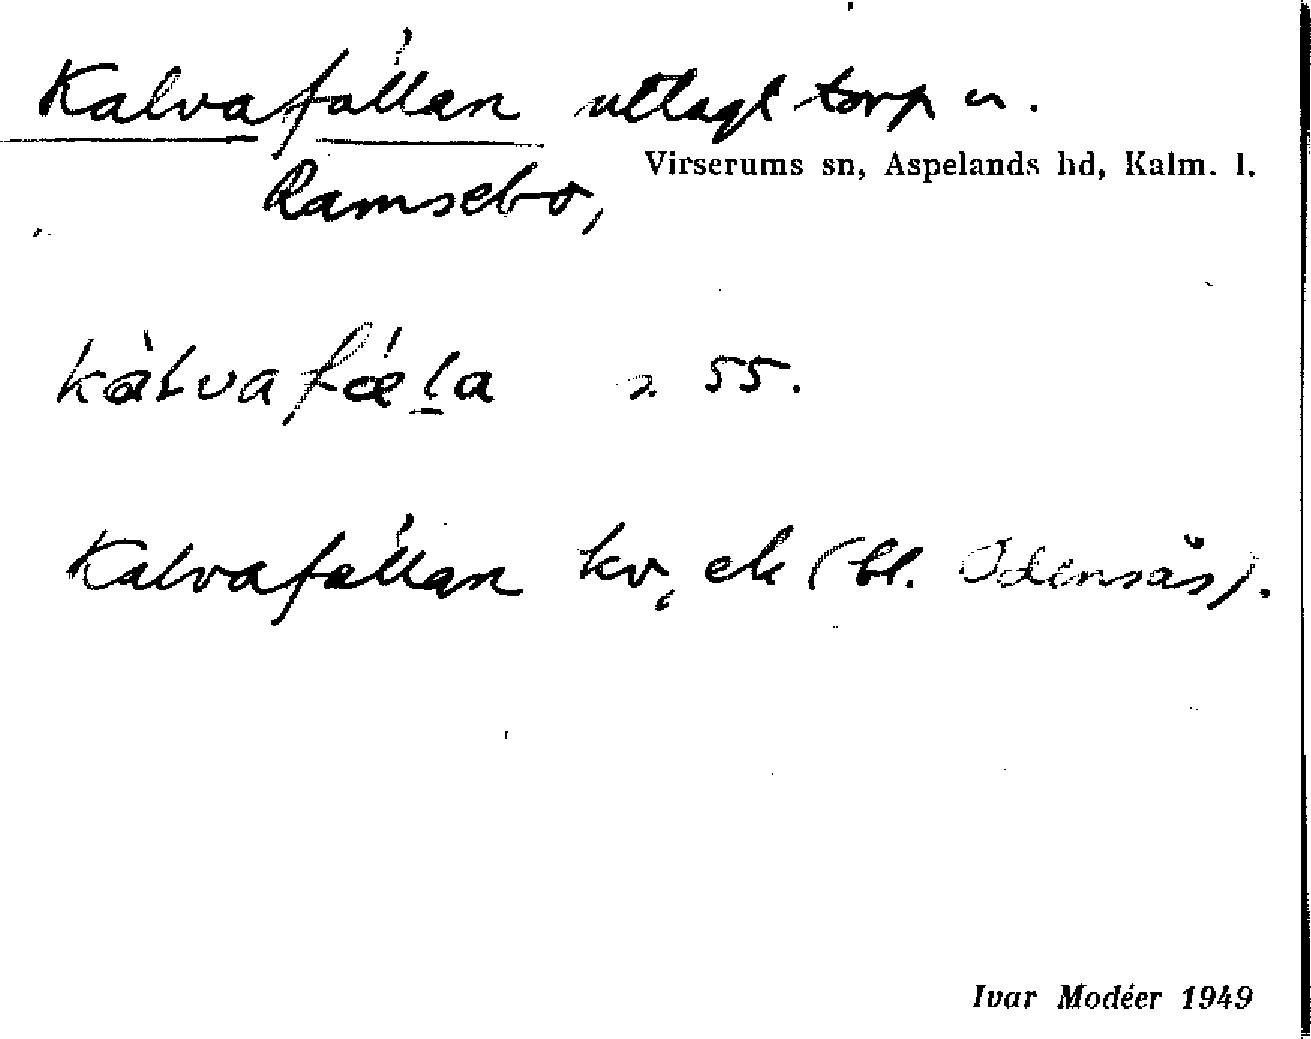 Kalvafällan utlagt torp u.
Virserums sn, Aspelands hd, Kalm. l.
Ramsebo,
kàlvafǽḻa 2. 55.
Kalvafällan kv, ek (bl. Idensås).
Ivar Modéer 1949